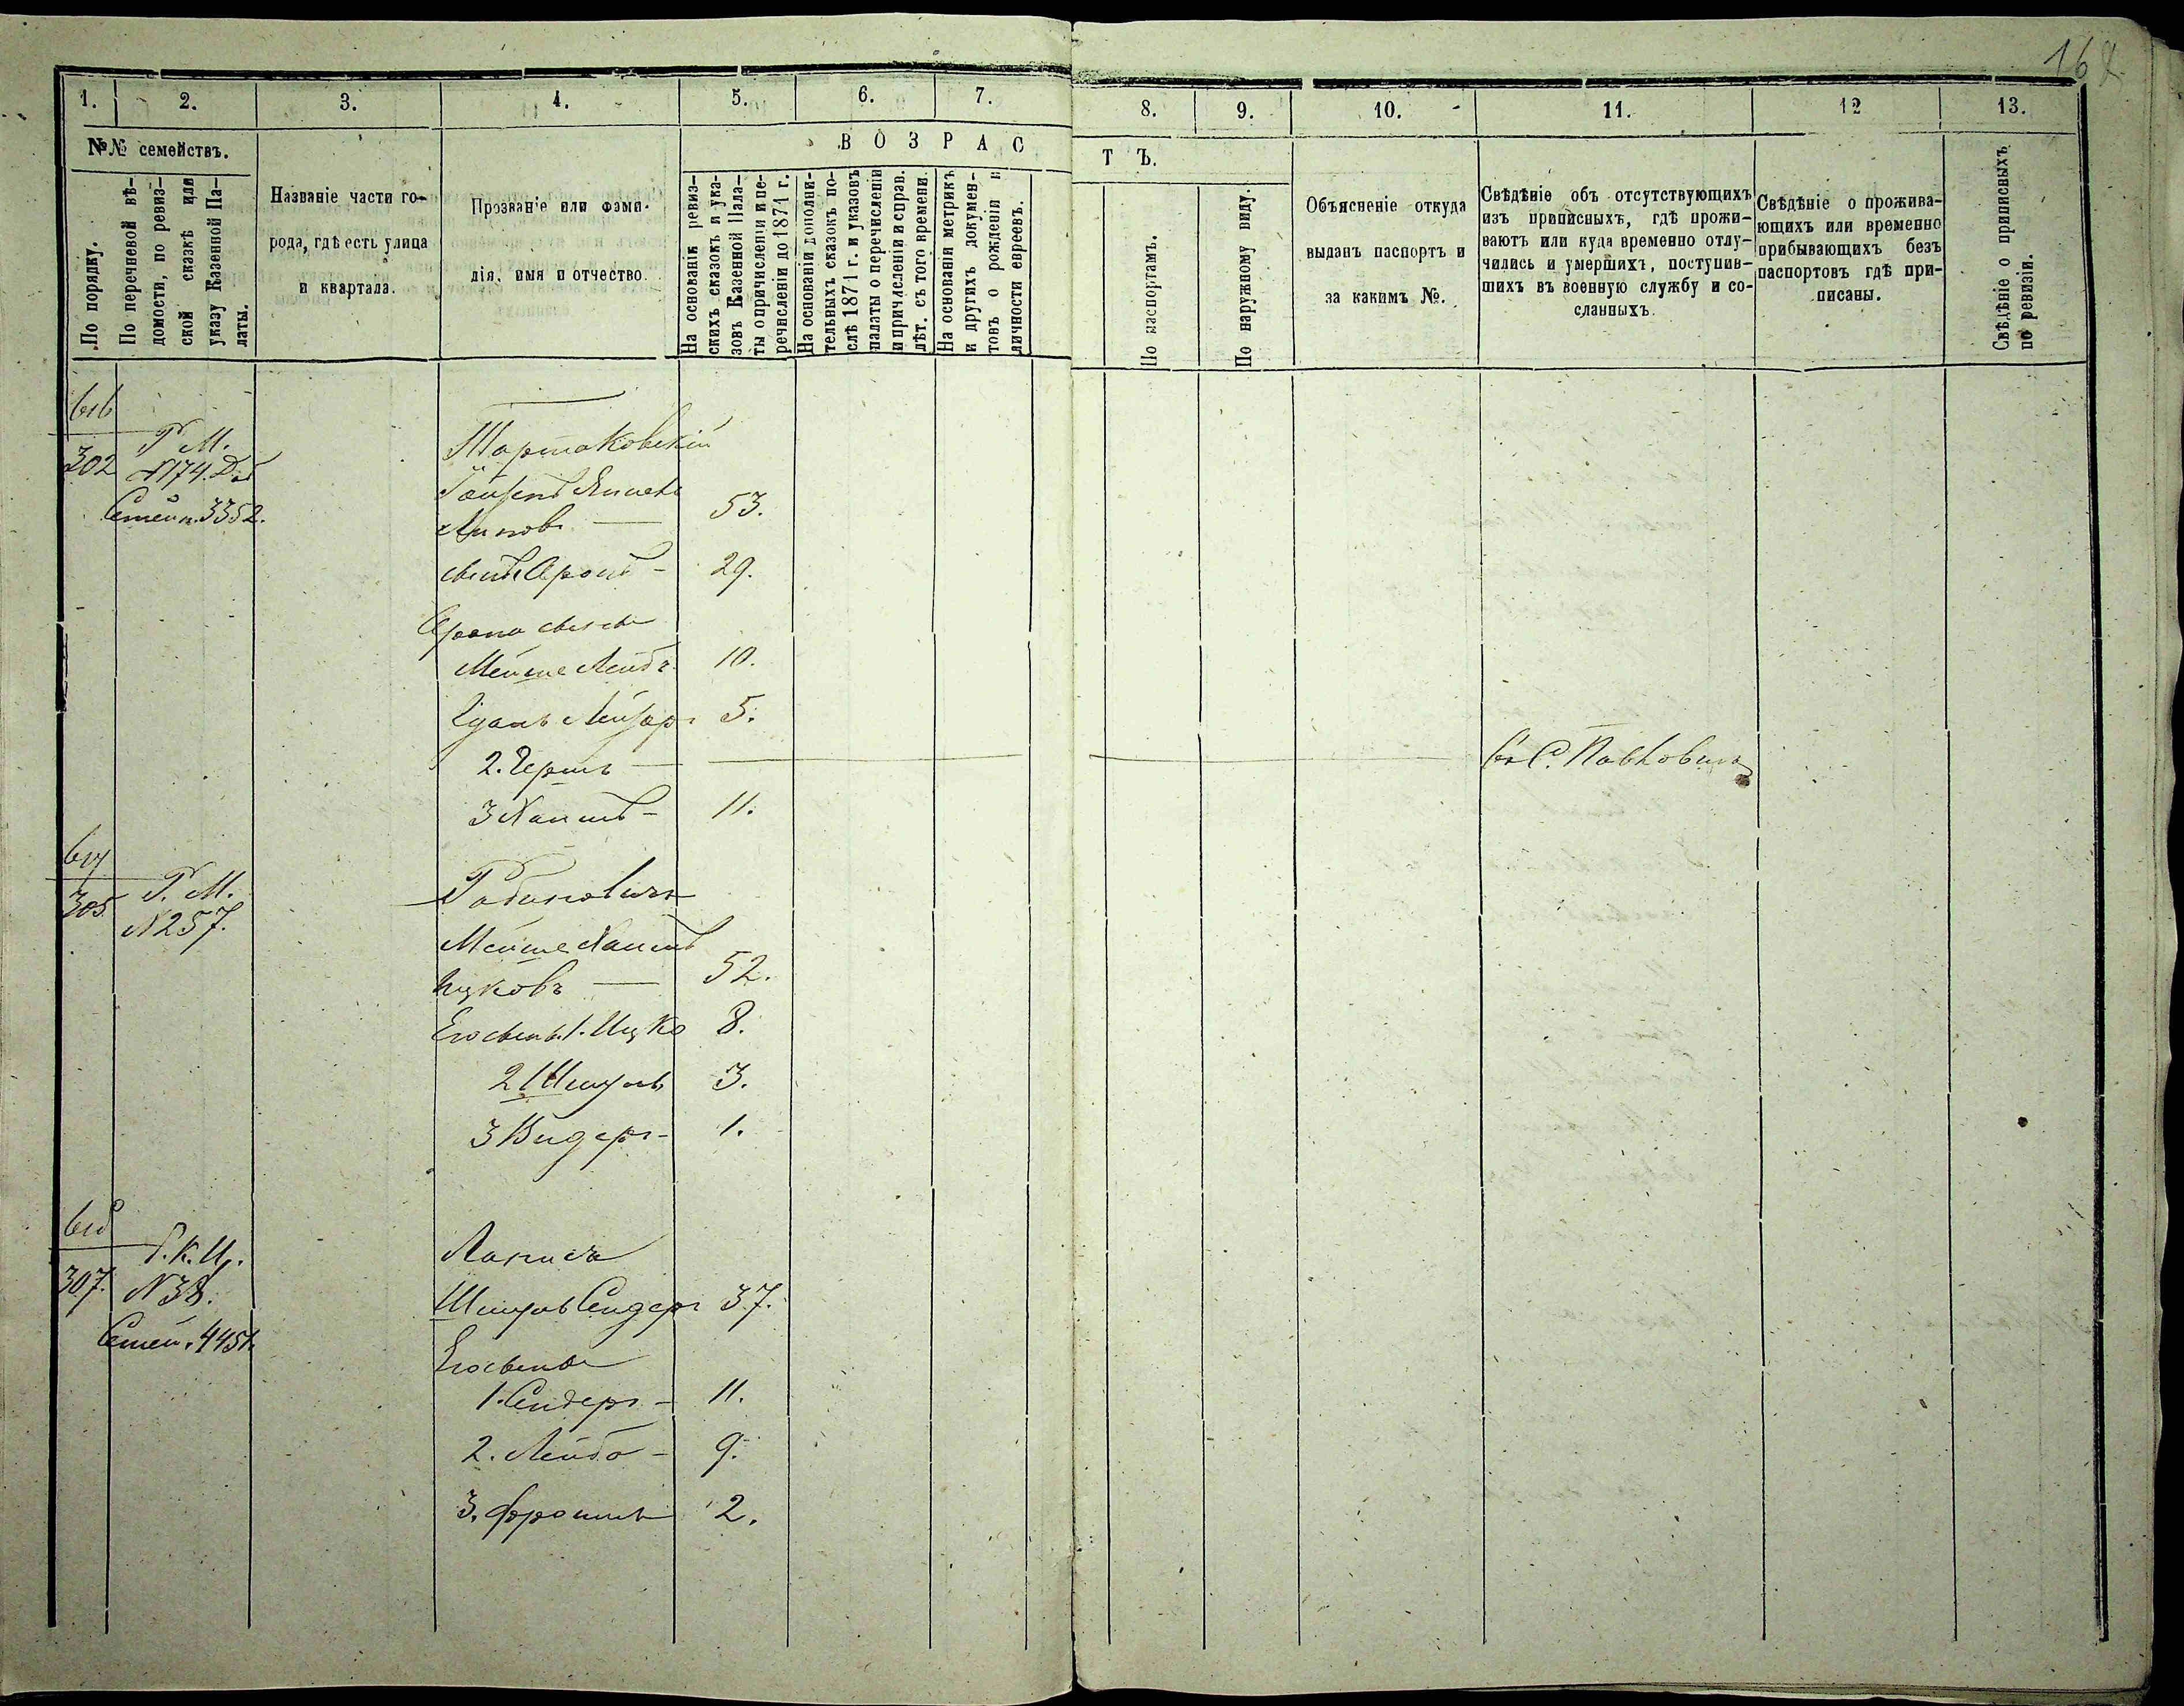 168
1. 2. 3. 4. 5. 6. 7. 8. 9. 10. 11. 12 13.
№№ семействъ.
По порядку.
По перечневой вѣ-
домости, по ревиз-
ской сказкѣ или
указу Казенной Па-
латы.
Названіе части го-
рода, гдѣ есть улица
и квартала.
Прозваніе или фами-
лія, имя и отчество.
ВОЗРАСТЪ.
На основаніи ревиз-
скихъ сказокъ и ука-
зовъ Казенной Пала-
ты о причисленіи и пе-
речисленіи до 1871 г.
На основаніи дополни-
тельныхъ сказокъ по-
слѣ 1871 г. и указовъ
палаты о перечисленіи
и причисленіи и справ.
лѣт. съ того времени.
На основаніи метрикъ
и другихъ докумен-
товъ о рожденіи и
личности евреевъ.
По паспортамъ.
По наружному виду.
Объясненіе откуда
выданъ паспортъ и
за какимъ №.
Свѣдѣніе объ отсутствующихъ
изъ приписныхъ, гдѣ прожи-
ваютъ или куда временно отлу-
чились и умершихъ, поступив-
шихъ въ военную службу и со-
сланныхъ.
Свѣдѣніе о прожива-
ющихъ или временно
прибывающихъ безъ
паспортовъ гдѣ при-
писаны.
Свѣдѣніе о приписныхъ
по ревизіи.
302 Р. М.
N 174. Доб
Семейн. 3352.
Тартаковскій
53.
Аронъ - 29.
Арона
Мейше Лейбъ 10.
Лейзоръ 5.
2. Гершъ —
3 Хаимъ - 11.
305 Р. М.
N 257.
Рабиновичъ
Мейше Хаимъ
Ицковъ — 52.
Его сынъ 1. Ицко 8.
2 Шмуль 3.
3 Видеръ - 1.
307. Р. К. Ц.
N 38.
Семей. 4451.
Шмуль Сендеръ 37.
Его сыновья
1. Сендеръ - 11.
2. Лейба - 9.
3. Фроимъ 2.